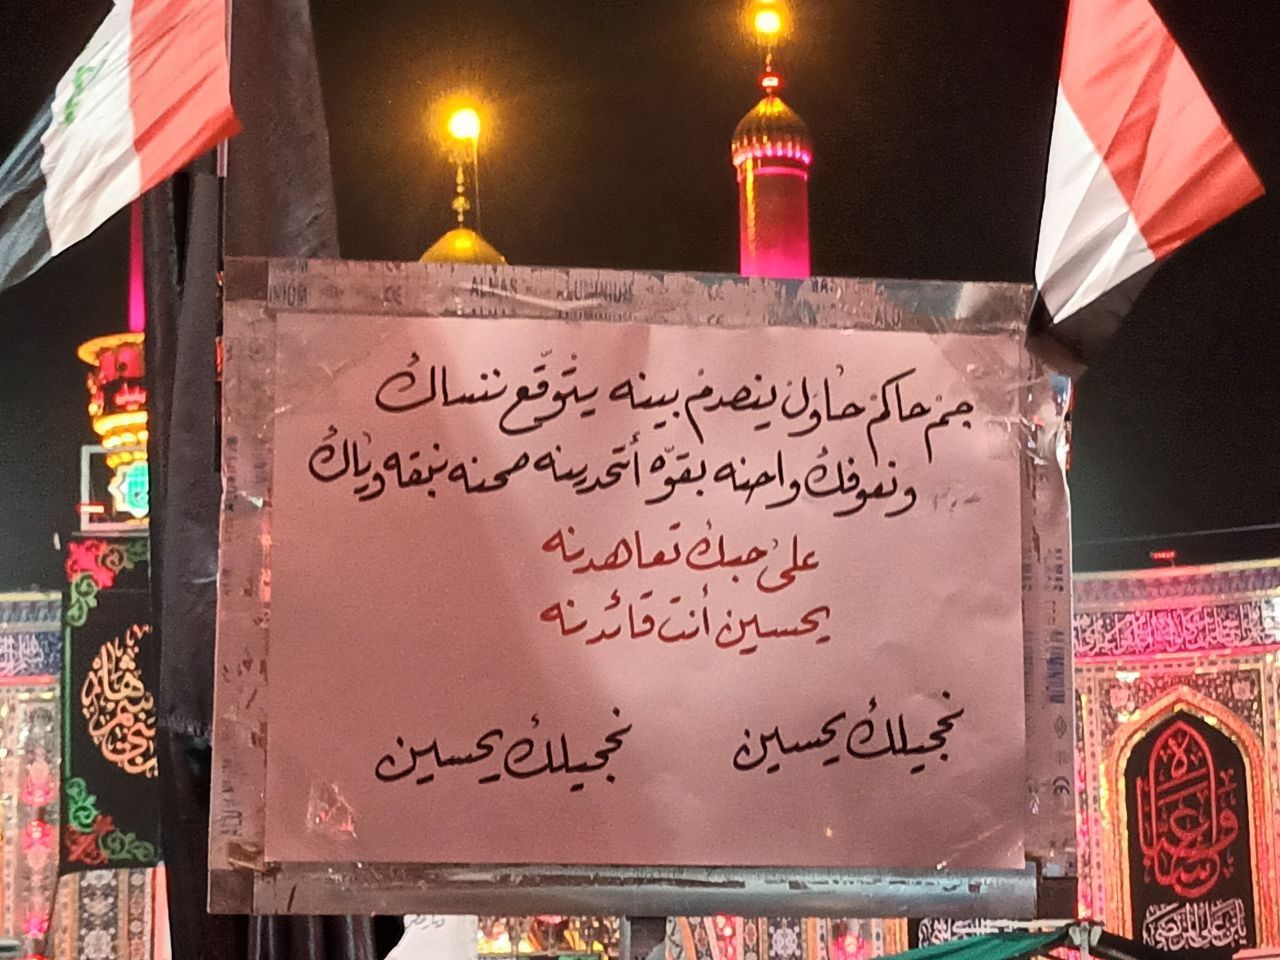 جمْ حاكمْ حاوَلْ ينصدمْ بينه يتْوقّع ننساكْ
ونعوفكْ واحنه بقوّه أتحدينه صحنه نبقه ويّاكْ
علىٰ حبكْ تعاهدنه
يحسين أنت قائدنه
نجيلكْ يحسين نجيلكْ يحسين